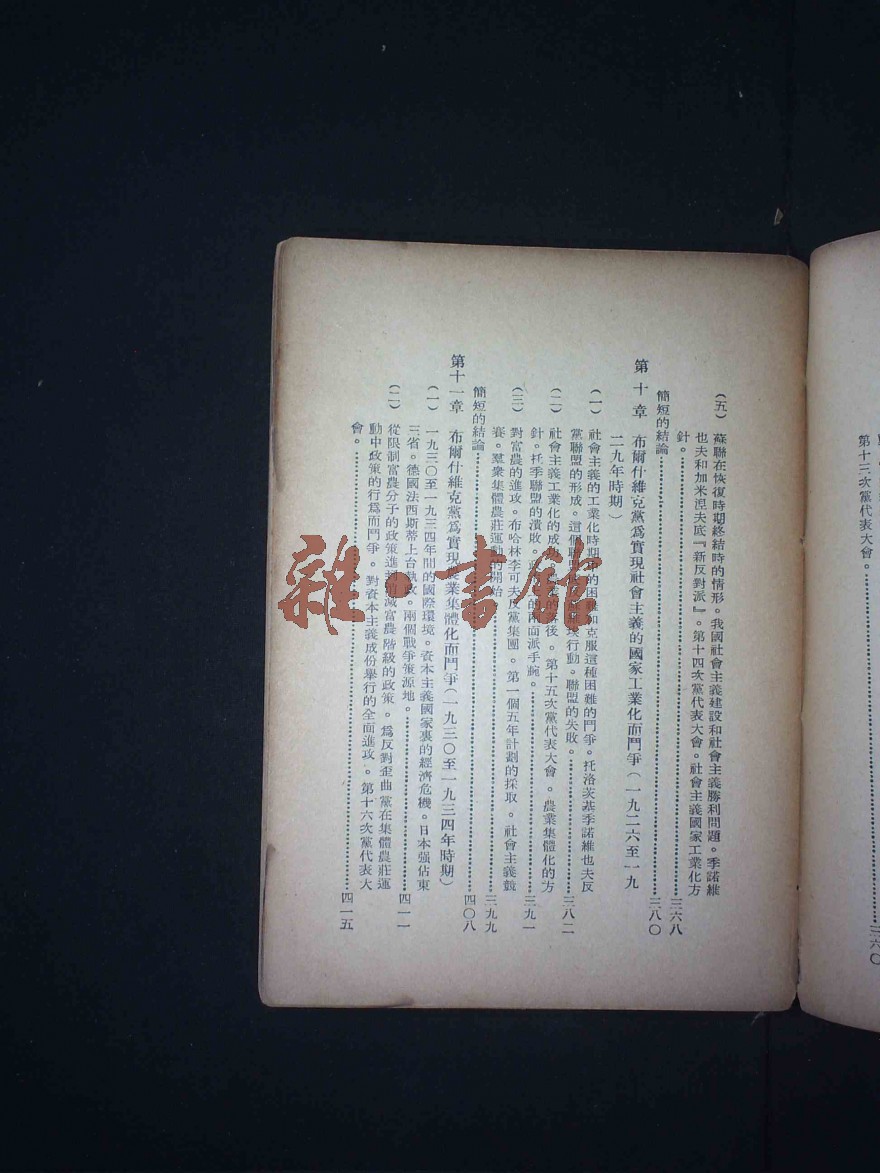 第十三次黨代表大會。
三六〇
(五) 蘇聯在恢復時期終結時的情形。我國社會主義建設和社會主義勝利問題。季諾維
也夫和加米涅夫底『新反對派』。第十四次黨代表大會。社會主義國家工業化方
針。 三六八
簡短的結論 三八〇
第十章 布爾什維克黨爲實現社會主義的國家工業化而鬥爭(一九二六至一九
二九年時期)
(一) 社會主義的工業化時期中的困難和克服這種困難的鬥爭。托洛茨基季諾維也夫反
黨聯盟的形成。這個聯 行動。聯盟的失敗。 三八二
(二) 社會主義工業化的成 後。第十五次黨代表大會。農業集體化的方
針。托季聯盟的潰敗。 兩面派手腕。 三九一
(三) 對富農的進攻。布哈林李可夫反黨集團。第一個五年計劃的採取。社會主義競
賽。羣衆集體農莊運動的開始 三九九
簡短的結論 四〇八
第十一章 布爾什維克黨爲實現農業集體化而鬥爭(一九三〇至一九三四年時期)
(一) 一九三〇至一九三四年間的國際環境。資本主義國家裏的經濟危機。日本强佔東
三省。德國法西斯蒂上台執政。兩個戰爭策源地。 四一一
(二) 從限制富農分子的政策進到消滅富農階級的政策。爲反對歪曲黨在集體農莊運
動中政策的行爲而鬥爭。對資本主義成份舉行的全面進攻。第十六次黨代表大
會。 四一五
雜·書館